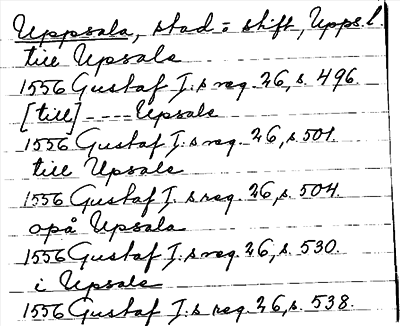 Uppsala, stad o. stift, Upps.l.
till Upsala
1556 Gustaf I:s reg. 26, s. 496.
[till] ---- Upsala
1556 Gustaf I:s reg. 26, s. 501.
till Upsala
1556 Gustaf I:s reg. 26, s. 504.
opå Upsala
1556 Gustaf I:s reg. 26, s. 530.
i Upsala
1556 Gustaf I:s reg. 26, s. 538.